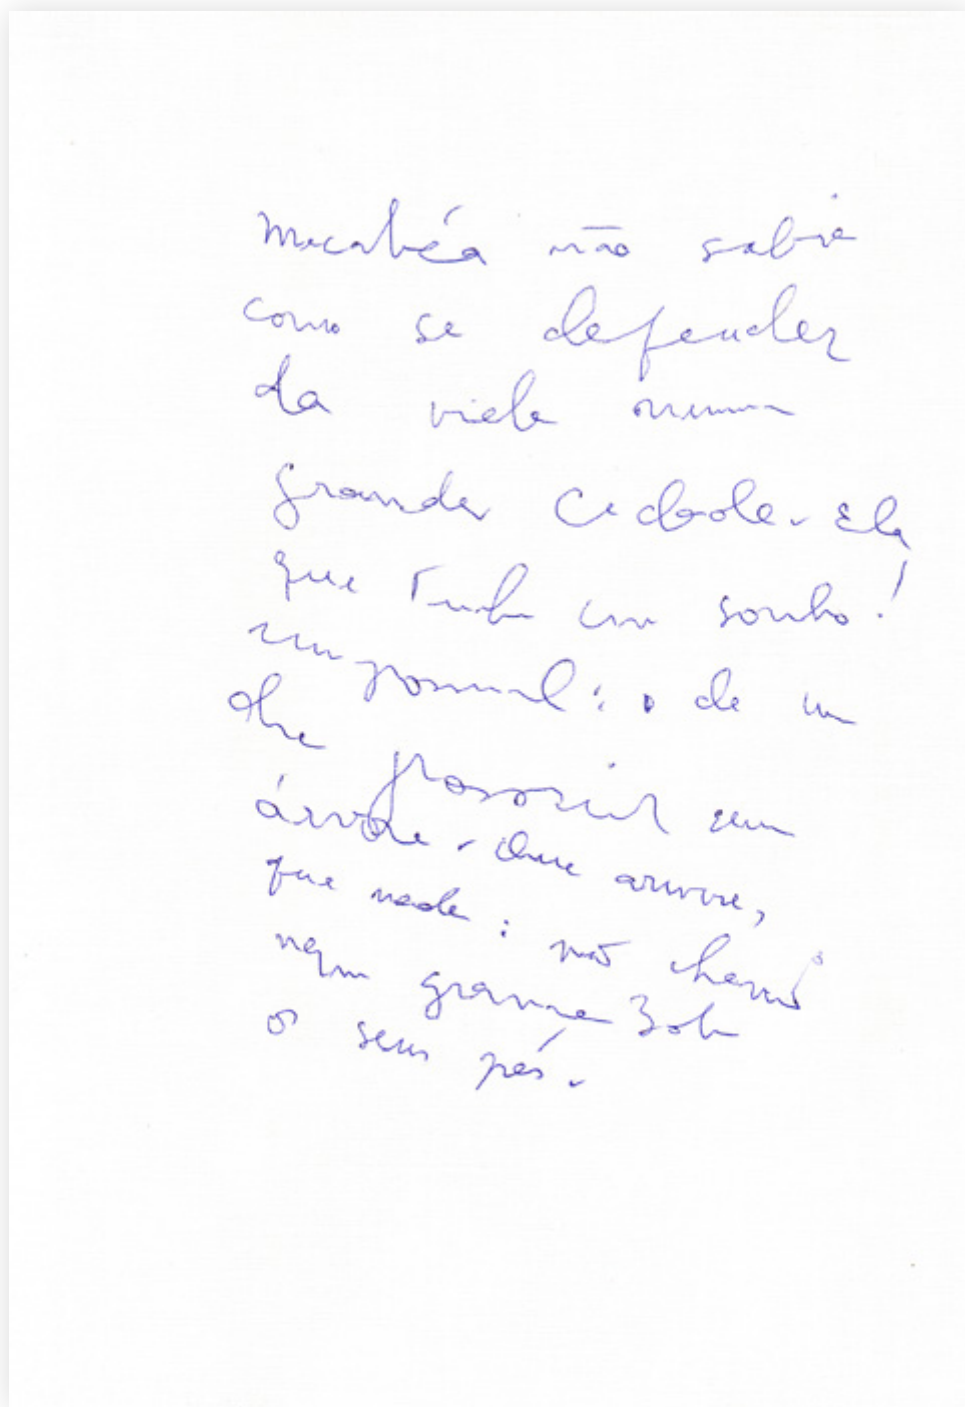 Macabéa não sabia
como se defender
da vida numa
grande cidade. Ela
que tinha um sonho!
impossível: o de um
dia possuir uma
árvore. Que árvore,
que nada: não havia
nem grama sob
os seus pés.